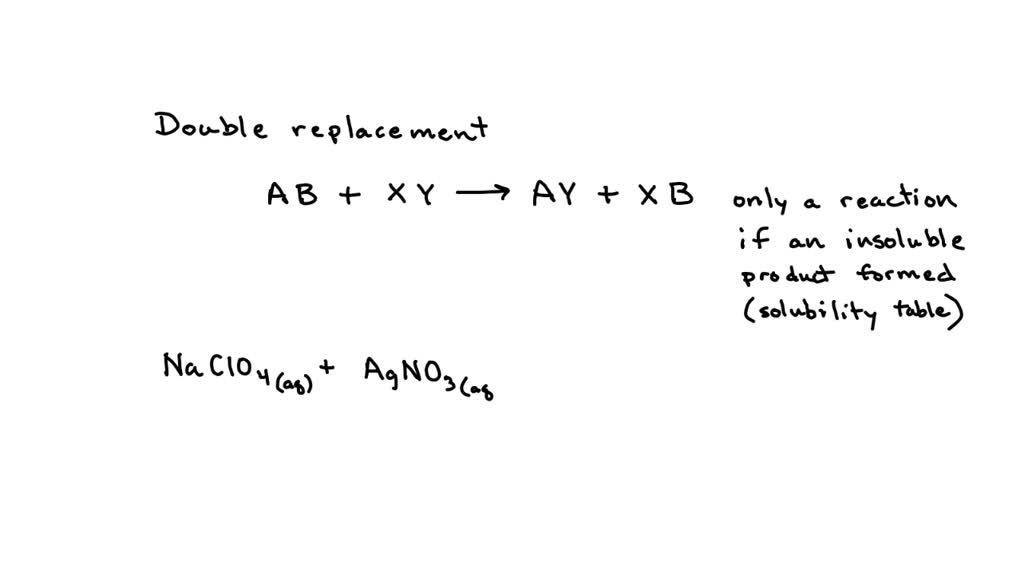 Double replacement
AB + XY → AY + XB
only a reaction
if an insoluble
product formed
(solubility table)
NaClO4(aq) + AgNO3(aq